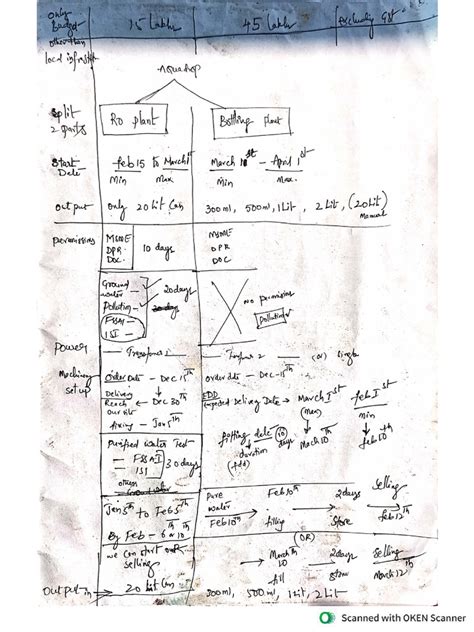 only Budget 15 Lakhs 45 Lakhs exclusively GST
other than
local infra
Aquadrop
Split 2 parts RO plant Bottling plant
Start Date feb 15 to March 1st March 1st – April 1st
Min Max Min Max.
Output only 20 Lit Can 300ml, 500ml, 1 Lit, 2 Lit, (20 Lit)
Manual
permissing MSME MSME
DPR 10 days DPR
DOC. DOC
Ground water 20 days
Pollution NO permission
FSSAI Pollution
ISI
Power (or)
Machinery set up Order Date – Dec 15th order date – Dec – 15th
Delivery EDD
Reach our site ← Dec 30th Expected Delivery Date → March 1st feb 1st
(max) min
fixing – Jan 5th fitting date 10 days March 10th feb 10th
duration
Purified Water Test
– FSSAI 30 days
ISI
others
Jan 5th to Feb 5th Pure water → Feb 10th → 2 days → Selling
Feb 10th filling Store Feb 12th
By Feb – 6th or 10th (OR)
we can start our selling → March 10th → 2 days → Selling
fill March 12th
Output 20 Lit Can 300ml, 500ml, 1 Lit, 2 Lit
Scanned with OKEN Scanner